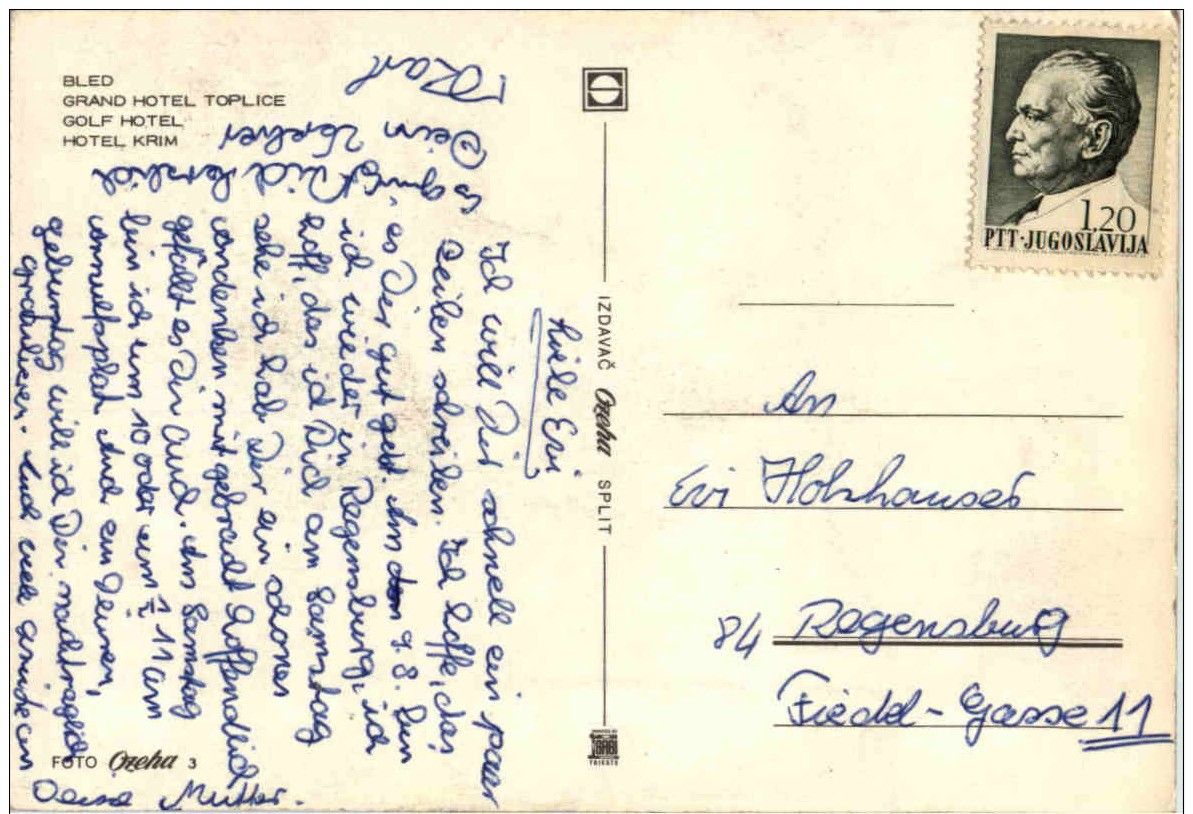 BLED
GRAND HOTEL TOPLICE
GOLF HOTEL
HOTEL KRIM
1.20
PTT-JUGOSLAVIJA
IZDAVAČ Ozeha SPLIT
TRIESTE
FOTO Ozeha 3
Liebe Evi
Ich will Dir schnell ein paar
Zeilen schreiben. Ich hoffe, das
es Dir gut geht. Am 7.8. bin
ich wieder in Regensburg, ich
hoff, das ich Dich am Samstag
sehe ich hab Dir ein schones
andenken mit gebracht hoffendlich
gefällt es Dir Auch. Am Samstag
bin ich um 10 oder um ½ 11 am
Und zu Deinen,
geburtstag will ich Dir nachträglich
gratulieren. Und viele Grüße an
Deine Mutter.
Es grüßt Dich herzlich
Dein
Karl
An
Evi Holzhauser
84 Regensburg
Fiedel-Gasse 11